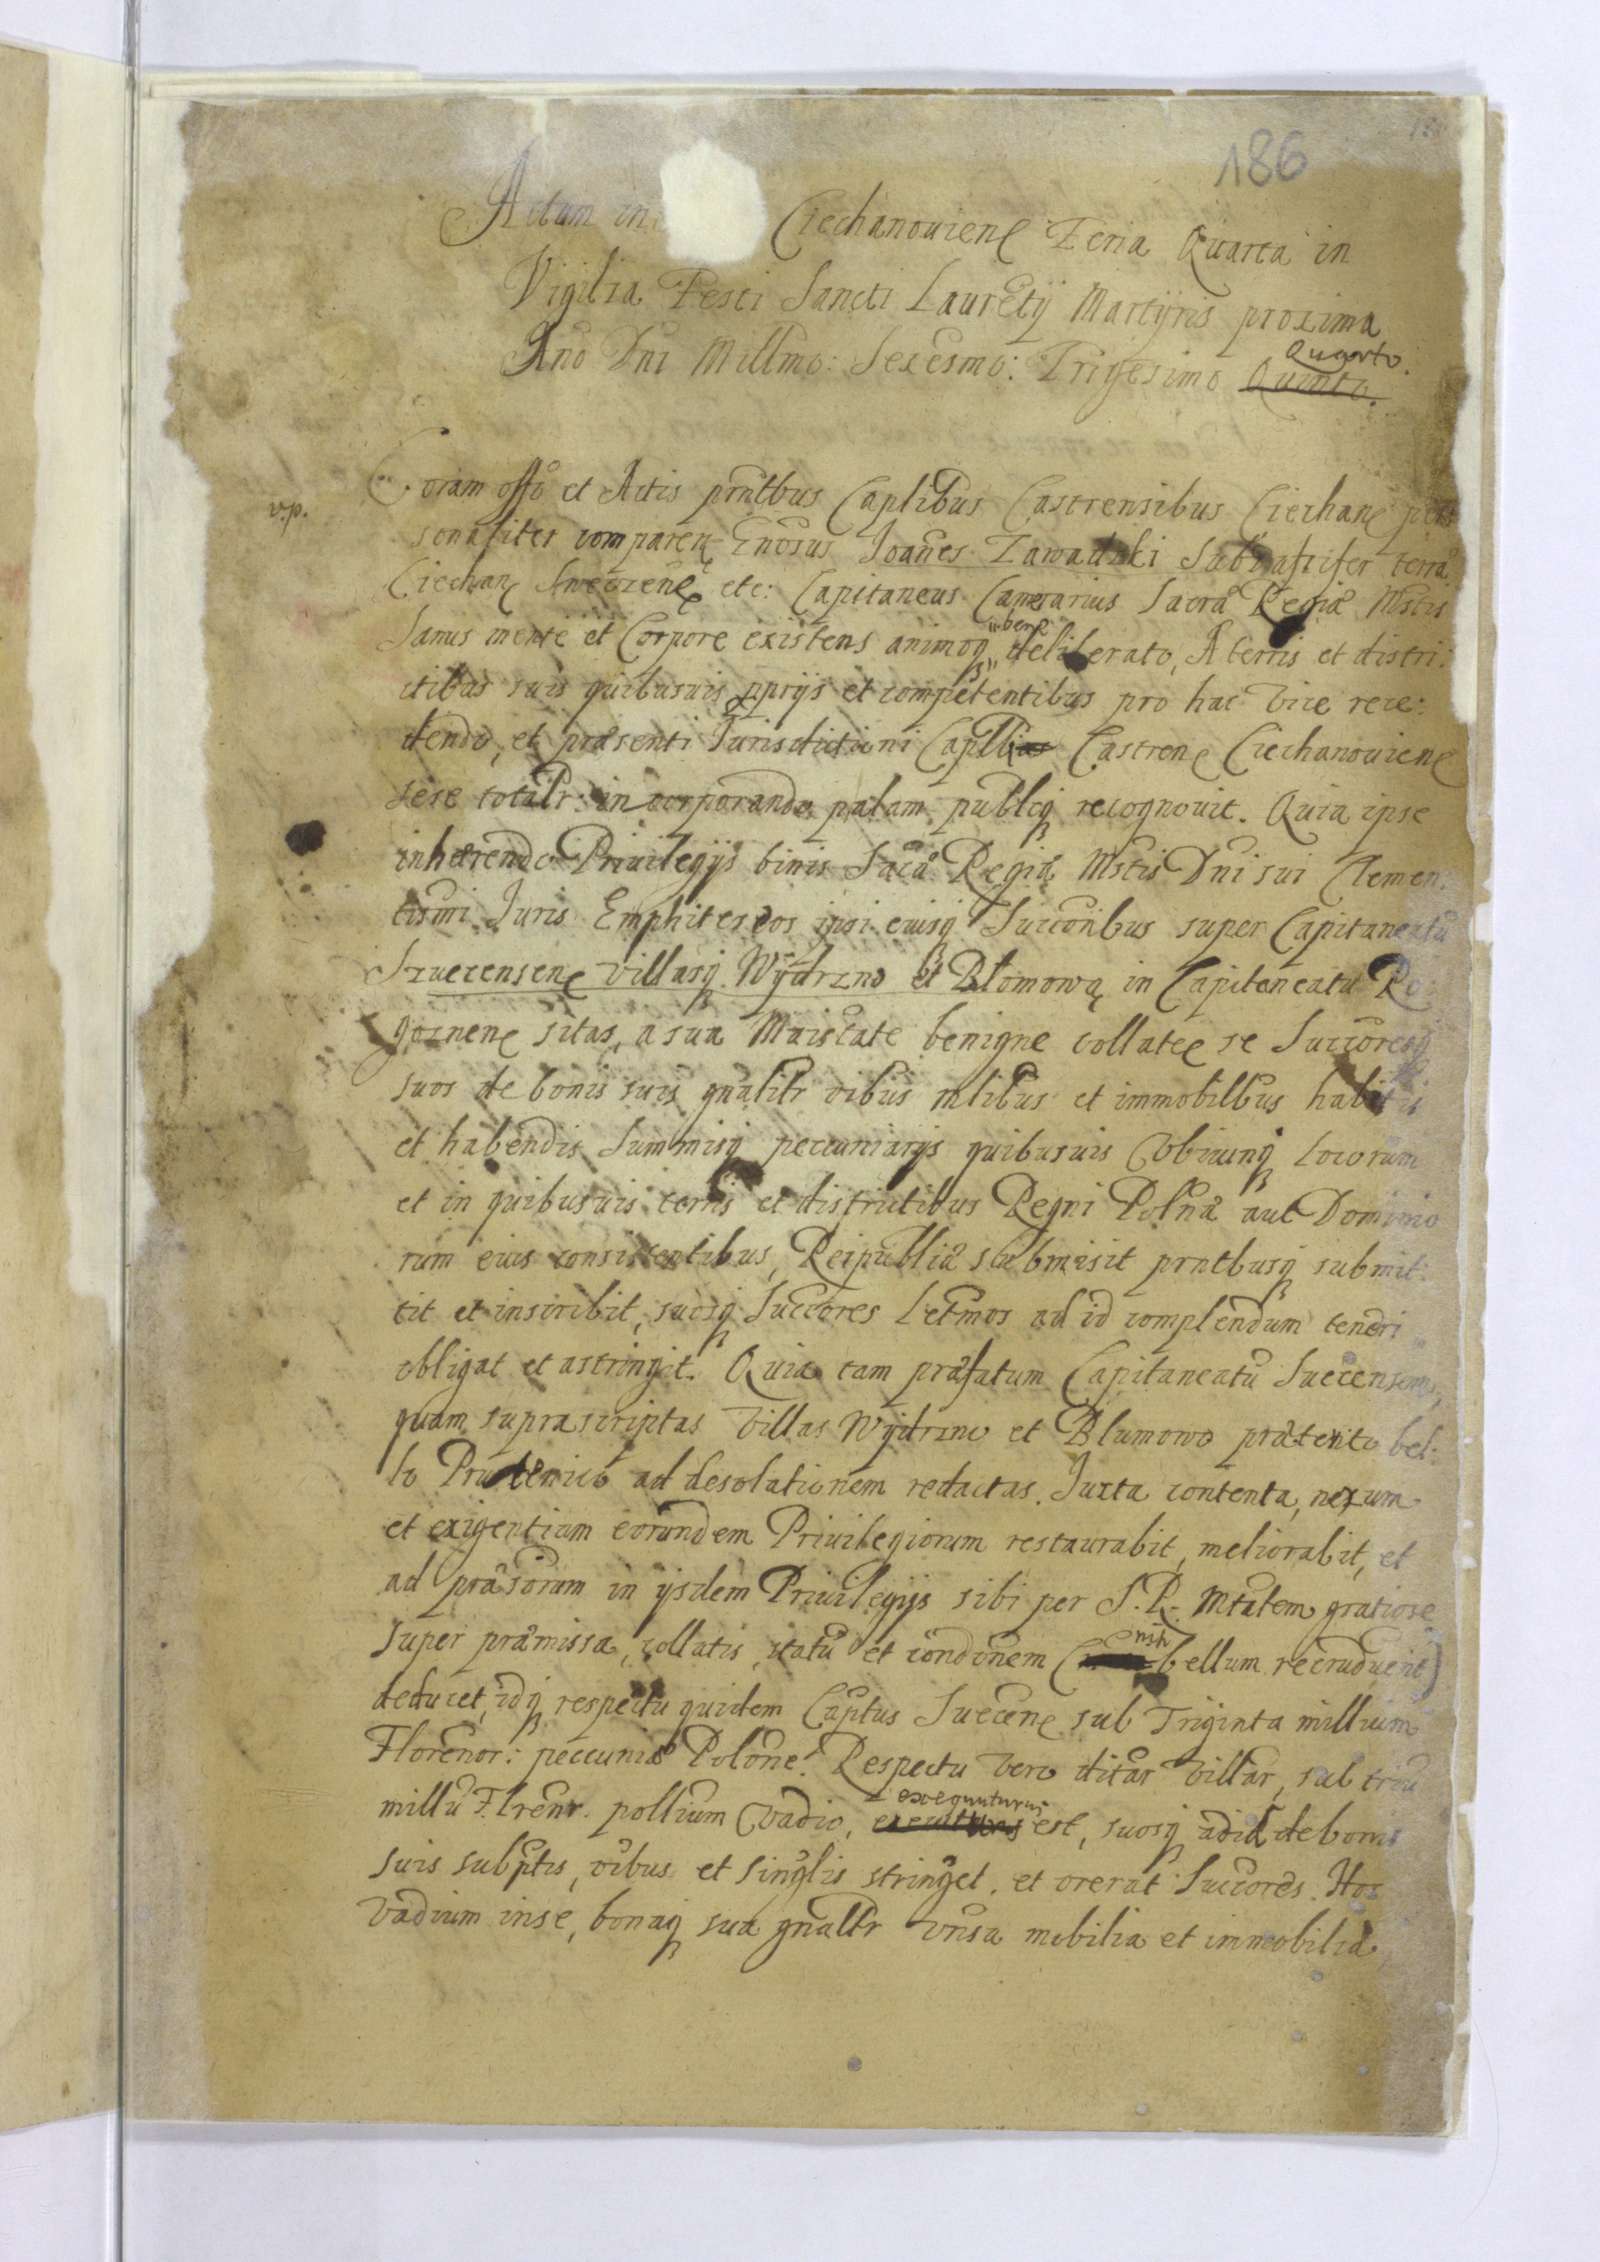 186
Actum in Ciechanouien Feria Quarta in
Vigilia Festi Sancti Laurētij Martyris proxima
Año Dni Millmo: Sexcsmo: Trigesimo Quinto. Quarto.
Coram offo et Actis pntbus Caplibus Castrensibus Ciechan per
sonaliter comparen Gnosus Joañes Zawadzki Subdapifer terræ
Ciechan Swecen etc: Capitaneus Camerarius Sacræ Regiæ Mstis
Sanus mente et Corpore existens animoq bene deliberato, A terris et distri:
ctibus suis quibusuis pprijs et competentibus pro hac vice rece:
dendo, et præsenti Jurisdictioni Capli Castren Ciechanouien
sese totalr: incorporando, palam publicq recognouit. Quia ipse
inhærendo Priuilegijs binis Sacæ Regiæ Mstis Dni sui Clemen:
tismi Juris Emphiteseos ipsi eiusq Succoribus super Capitaneatu
Szuecensen villasq Wydrzno et Blomowo in Capitaneatu Ro:
goznen sitas, a sua Maiestate benigne collates se Succoresq
suos de bonis suis gnalitr oibus mlibus et immobilbus habitis
et habendis Summisq peccuniarijs quibusuis Vbicunq locorum
et in quibusuis terris et districtibus Regni Polnæ aut Dominio
rum eius consistentibus, Reipublicæ submisit pntbusq submit:
tit et inscribit, suosq Succores Letmos ad id complendum teneri
obligat et astringit. Quia tam præfatum Capitaneatū Suecensem,
quam suprascriptas Villas Wydrzno et Blumowo prætento bel:
lo Prutenico ad desolationem redactas. Juxta contenta, nexum
et exigentiam eorundem Priuilegiorum restaurabit, meliorabit, et
ad in ijsdem Priuilegijs sibi per S. R. Mtatem gratiose
super præmissa, collatis, statū et condonem (nisi bellum recruduerit)
deducet, idq respectu quidem Captus Suecen sub Triginta millium
Florenor: peccuniæ Polone. Respectu vero ditar Villar, sub triū
millū Flrenr. pollium Vadio, exequuturus est, suosq ad id de bonis
suis subptis, oibus et singlis stringet. et onerat Succores. Hoc
Vadium in se, bonaq sua gnaltr vnsa mobilia et immobilia